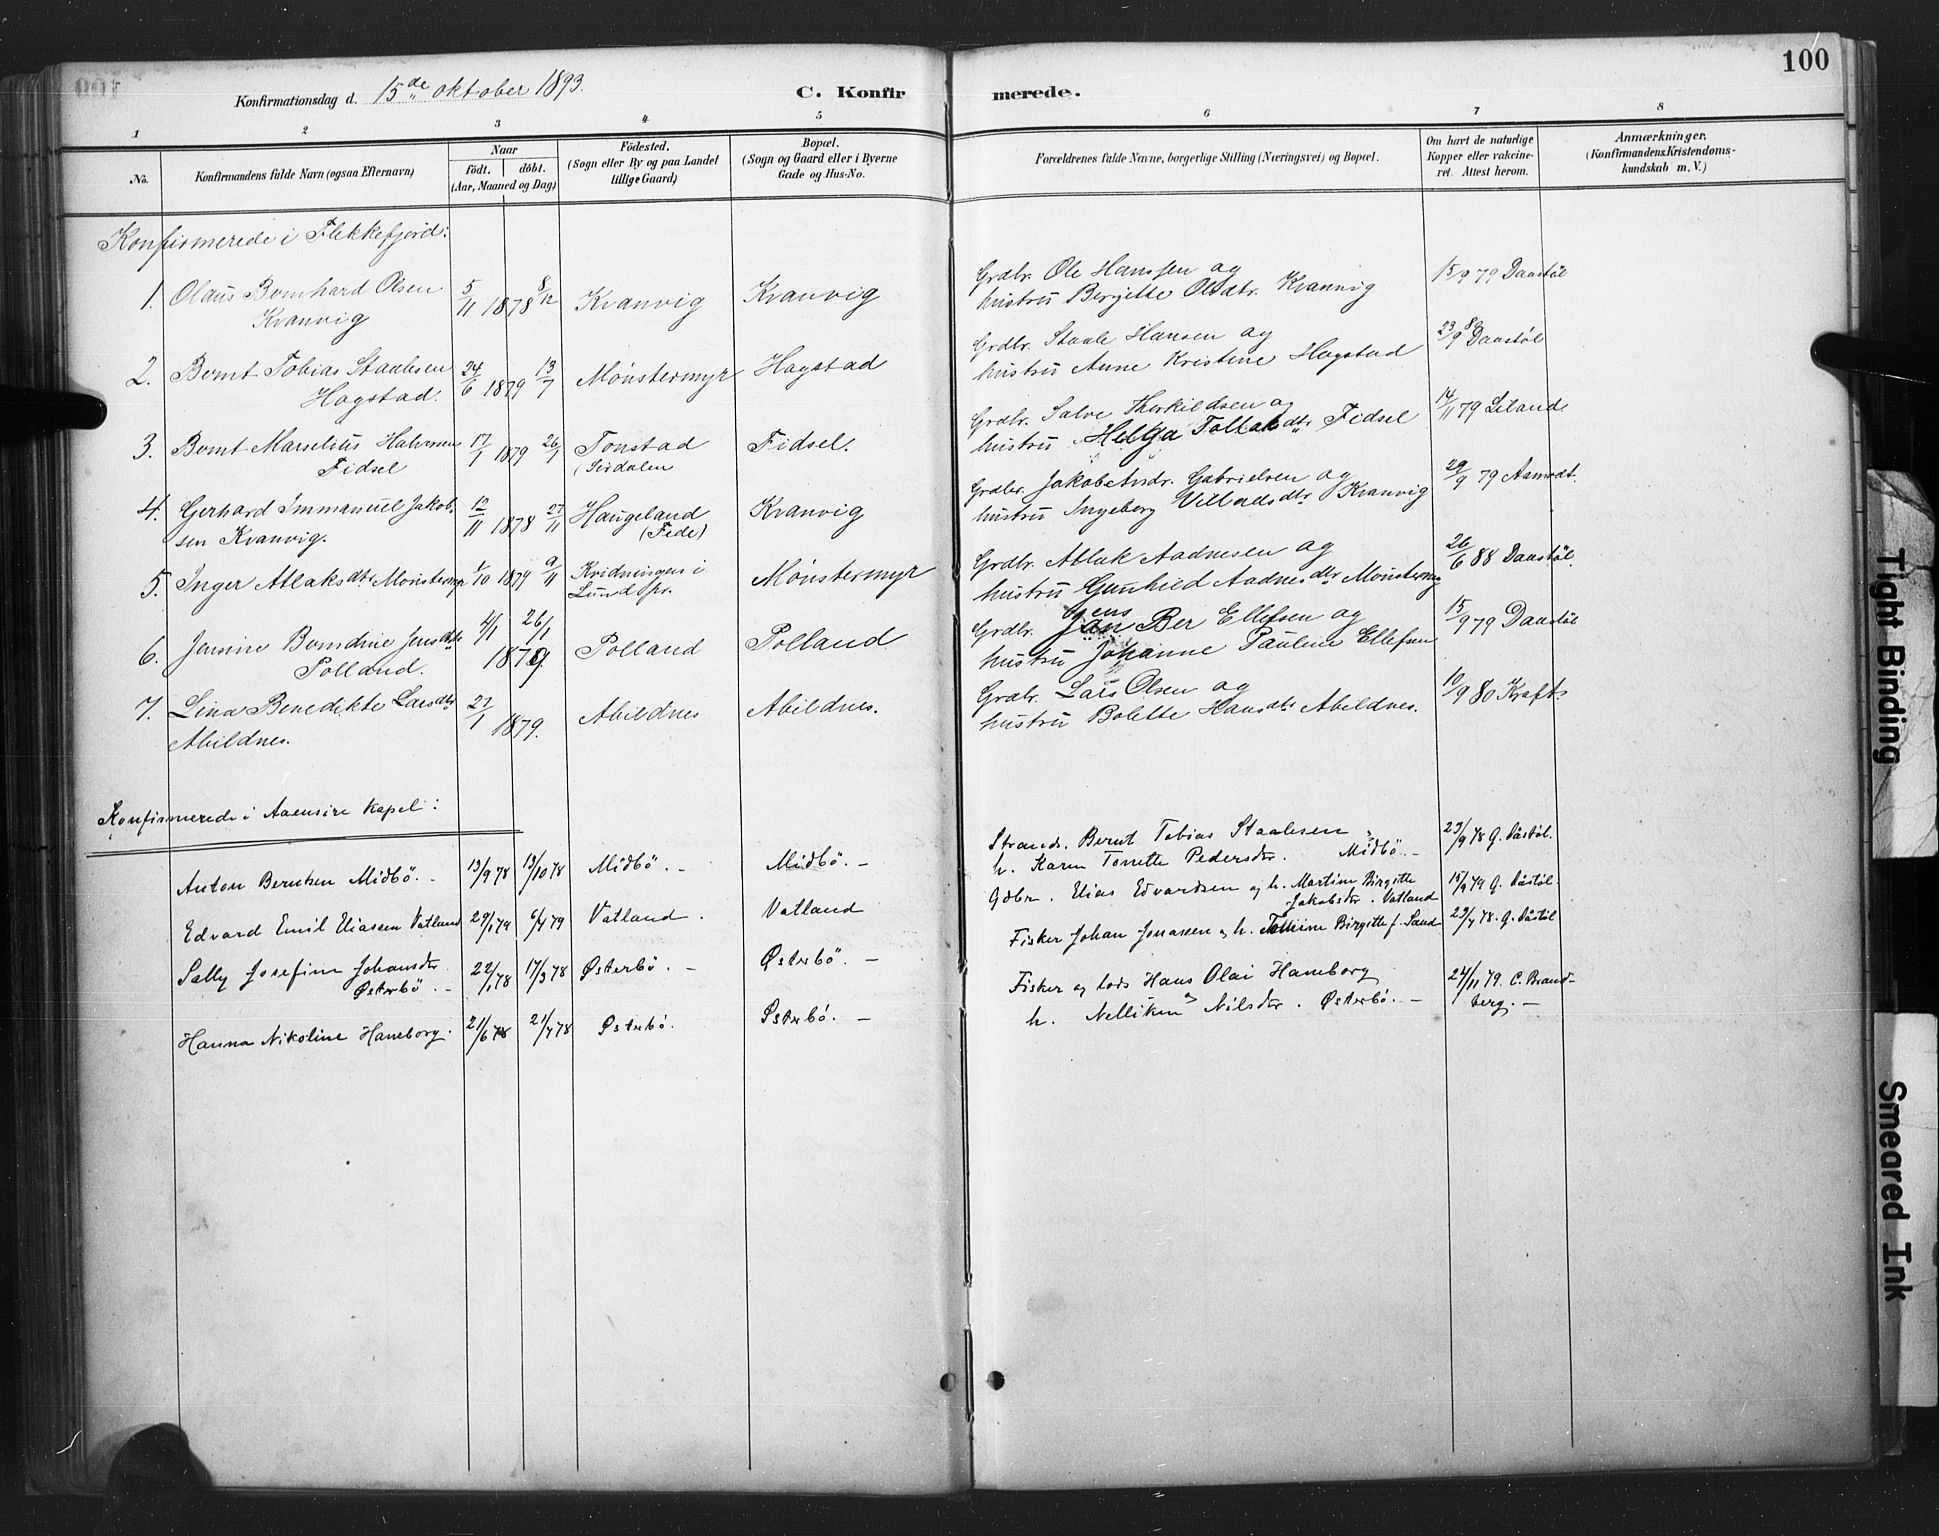 100
Konfirmationsdag d. 15de oktober 1893.
C. Konfirmerede.
1 2 3 4 5 6 7 8
No.
Konfirmandens fulde Navn (ogsaa Efternavn)
Naar
födt. döbt.
(Aar, Maaned og Dag)
Födested.
(Sogn eller By og paa Landet
tillige Gaard)
Bopæl.
(Sogn og Gaard eller i Byerne
Gade og Hus-No.
Forældrenes fulde Navne, borgerlige Stilling (Næringsvei) og Bopæl.
Om havt de naturlige
Kopper eller vakcine-
ret. Attest herom.
Anmærkninger.
(Konfirmandens Kristendoms-
kundskab m. V.)
Konfirmerede i Flekkefjord:
1. Olaus Bernhard Olsen 5/11 1878 8/12 Kvanvig Kvanvig Grdbr. Ole Hanssen og 15/9 79 Daastøl
Kvanvig hustru Bergitte Olsdtr. Kvanvig
2. Bernt Tobias Staalesen 24/6 1879 13/7 Mönstermyr Hogstad Grdbr. Staale Hansen og 23/9 80 Daastøl
Hogstad. hustru Anne Kristine Hogstad
3. Bernt Marselius Halvorsen 17/1 1879 26/1 Tonstad Fidsel. Grdbr. Salve Therkildsen og 14/11 79 Liland.
Fidsel (Sirdalen hustru Helga Tollaksdtr Fidsel
4. Gerhard Immanuel Jakob- 12/11 1878 27/11 Haugeland Kvanvig Grdbr. Jakob Andr. Gabrielsen og 29/9 79 Aamodt.
sen Kvanvig. (Fede) hustru Ingeborg Villadsdtr Kvanvig
5. Inger Atlaksdt. Mönstermyr 1/10 1879 9/11 Kvidningen i Mönstermyr Grdbr. Atlak Aadnesen og 26/6 88 Daastöl.
Lund pr. hustru Gunhild Aadnesdtr Mönstermyr
6. Jensine Berndine Jensdtr 4/1 26/1 Polland Polland Grdbr. Jens Ber Ellefsen og 15/9 79 Daastöl
Polland. 1879. hustru Johanne Pauline Ellefsen
7. Lina Benedikte Larsdtr 27/1 1879. Abildnes Abildnes. Grdbr. Lars Olsen og 10/9 80 Kraft.
Abildnes. hustru Bolette Hansdtr Abildnes.
Konfirmerede i Aaensire Kapel:
Anton Berntsen Midbö. 13/9 78 13/10 78 Midbö. Midbö. Strands. Bernt Tobias Staalesen 23/9 78 G. Dåstöl.
h. Karen Tonette Pedersdtr. Midbö.
Edvard Emil Eliassen Vatland 29/1 79 6/4 79 Vatland. Vatland Gdbr. Elias Edvardsen og h. Martine Birgitte 15/9 79 G. Dåstöl.
Jakobsdtr. Vatland
Sally Josefine Johansdtr 22/1 78 17/3 78 Østerbö. Østerbö. Fisker Johan Jonassen og h. Birgitte f. Sand 23/7 78. G. Dåstöl
Østerbö.
Hanna Nikoline Haneborg. 21/6 78 21/7 78 Østerbö. Østerbö. Fisker og lods Hans Olai Haneborg 24/11 79. C. Brand-
h. Nelliken Nilsdtr. Østerbö. berg.
Tight Binding
Smeared Ink